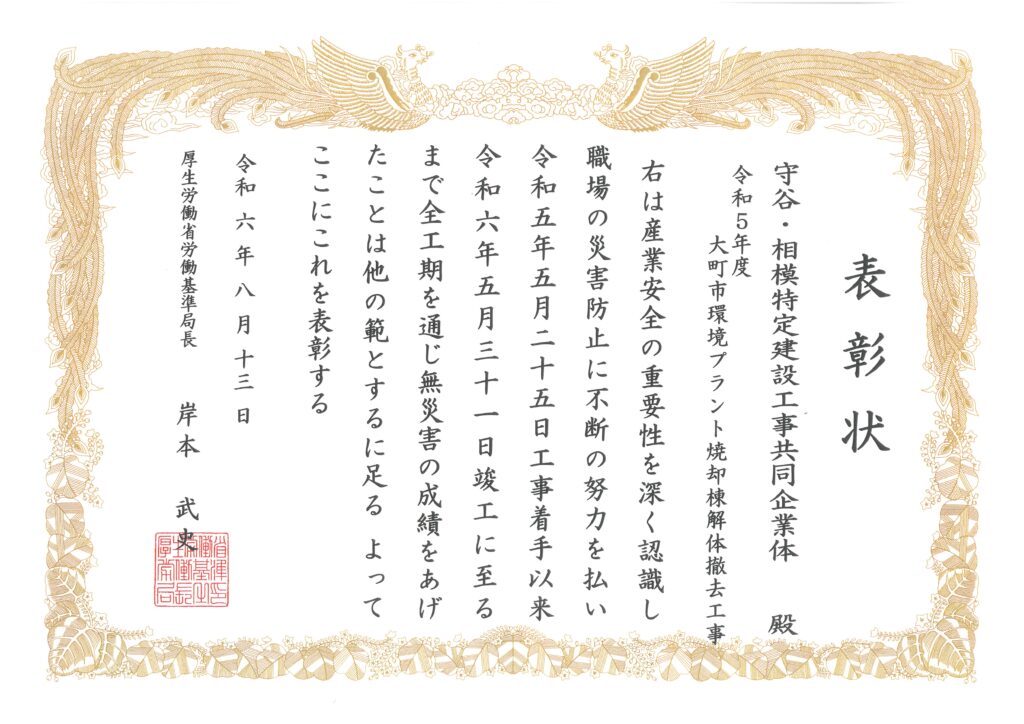 表彰状
守谷・相模特定建設工事共同企業体 殿
令和５年度
大町市環境プラント焼却棟解体撤去工事
右は産業安全の重要性を深く認識し
職場の災害防止に不断の努力を払い
令和五年五月二十五日工事着手以来
令和六年五月三十一日竣工に至る
まで全工期を通じ無災害の成績をあげ
たことは他の範とするに足る よって
ここにこれを表彰する
令和六年八月十三日
厚生労働省労働基準局長 岸本 武史